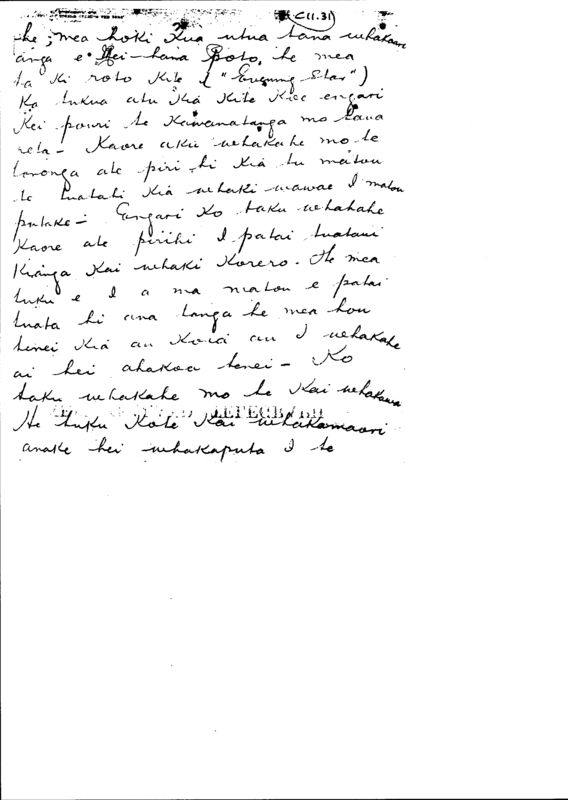 C11.31
he; mea hoki Kua utua tana whakaari
anga e Hei-hana Poto, he mea
ta ki roto Kite ("Evening Star")
Ka tukua atu Kia Kite Koe engari
Kei pouri te Kawanatanga mo taua
reta - Kaore aku whakahe mo te
tononga ate piri-hi Kia tu matou
te tuatahi Kia whaki wawae I matou
putake - Engari Ko taku whakahe
Kaore ate pirihi I patai tuatau
Kianga Kai whaki Korero. He mea
tuku e I a ma matou e patai
tuata hi ana tanga he mea hou
tenei Kia au Koia au I whakahe
ai hei ahakoa tenei - Ko
taku whakahe mo te Kai whakawa
He tuku Kote Kai whakamaori
anake hei whakaputa I te